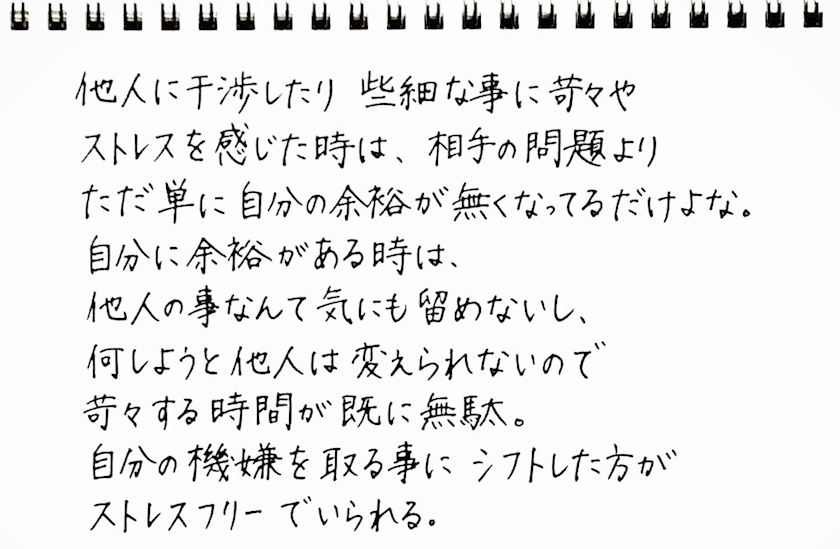 他人に干渉したり 些細な事に苛々や
ストレスを感じた時は、相手の問題より
ただ単に自分の余裕が無くなってるだけよな。
自分に余裕がある時は、
他人の事なんて気にも留めないし、
何しようと他人は変えられないので
苛々する時間が既に無駄。
自分の機嫌を取る事に シフトした方が
ストレスフリーでいられる。